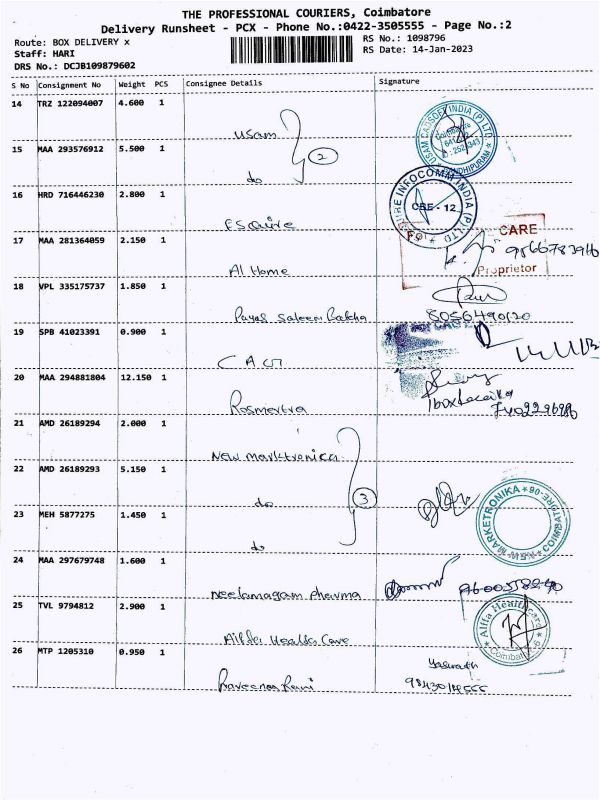 THE PROFESSIONAL COURIERS, Coimbatore
Delivery Runsheet - PCX - Phone No.:0422-3505555 - Page No.:2
Route: BOX DELIVERY x
RS No.: 1098796
Staff: HARI
RS Date: 14-Jan-2023
DRS No.: DCJB109879602
S No Consignment No Weight PCS Consignee Details Signature
14 TRZ 122094007 4.600 1 Usam
USAM CADSOFT INDIA (P) LTD
Coimbatore
GANDHIPURAM
15 MAA 293576912 5.500 1 do
2
16 HRD 716446230 2.800 1 Esquire
INFOCOMM INDIA (P) LTD
CBE - 12
17 MAA 281364059 2.150 1 Al Home
CARE
Proprietor
18 VPL 335175737 1.850 1 Payal Saleem Batcha
8056490120
19 SPB 41023391 0.900 1
20 MAA 294881804 12.150 1
21 AMD 26189294 2.000 1 New Marktronika
22 AMD 26189293 5.150 1 do
3
23 MEH 5877275 1.450 1 do
NEW MARKETRONIKA
COIMBATORE-06
24 MAA 297679748 1.600 1 Neelamagam Pharma
25 TVL 9794812 2.900 1 Alifda Health Care
Alifa Healthcare
Coimbatore
26 MTP 1205310 0.950 1 Praveena Rani